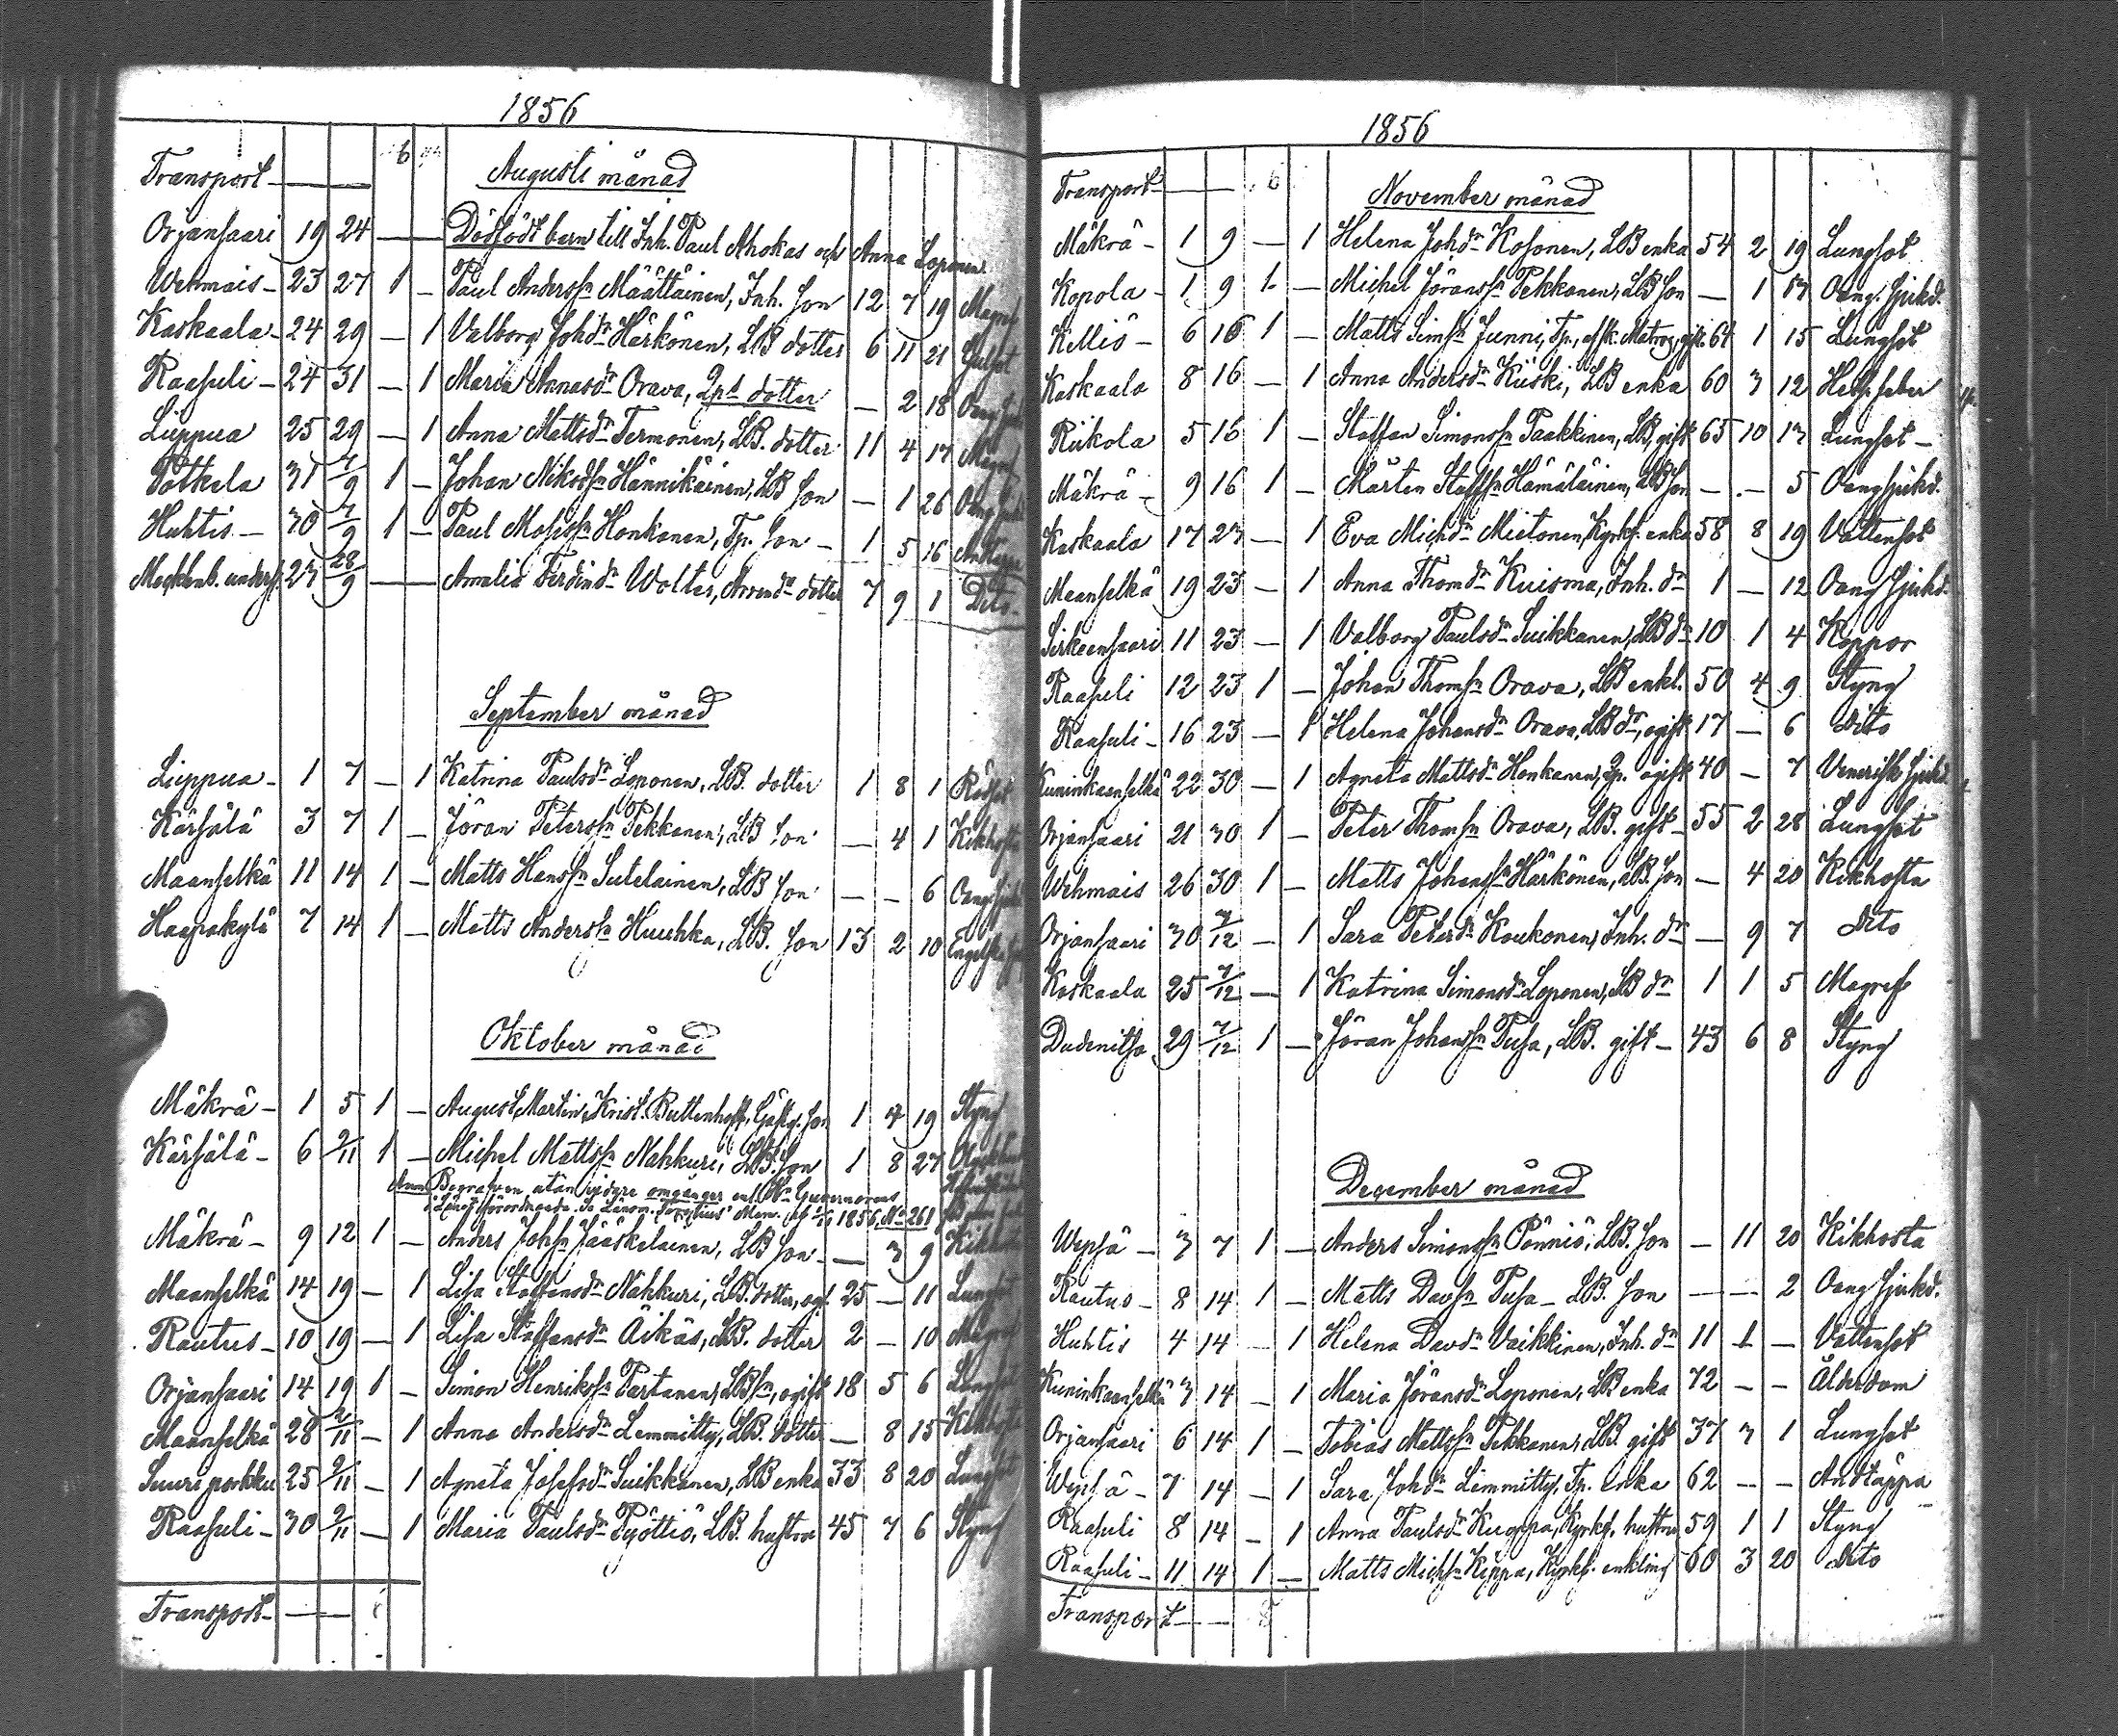 1856
Transport 6
Augusti månad
Orjansaari 19 24 — Dödfödt barn till Inh. Paul Ahokas och Anna Loponen
Wehmais 23 27 1 — Paul Anderssn Määttäinen, Inh. son 12 7 19 Magref
Kaskaala 24 29 — 1 Valborg Johdr Härkönen, LB dotter 6 11 21
Raasuli 24 31 — 1 Maria Annasdr Orava, dotter — 2 18 Oang. sjukd.
Lieppua 25 29 — 1 Anna Mattsdr Termonen, LB. dotter 11 4 17 Magref
Potkela 31 7/9 1 — Johan Hännikäinen, LB son — 1 26 Oang. sjukd.
Huhtis 30 7/9 1 — Paul Honkanen, Tp. son 1 5 16 Andtäppa
27 28/9 — Amalia Ferdindr Wolter, dotter 7 9 1 Dito
September månad
Lieppua 1 7 — 1 Katrina Paulsdr Loponen, LB. dotter 1 8 1 Rödsot
Kärsälä 3 7 1 — Jöran Peterssn Pekkanen, LB son — 4 1 Kikhosta
Maanselkä 11 14 1 — Matts Hanssn Sutelainen, LB son — — 6 Oang. sjukd.
Haapakylä 7 14 1 — Matts Anderssn Huuhka, LB. son 13 2 10 Engelska
Oktober månad
Mäkrä 1 5 1 — August Martin Krist. Buttenhoff, Gästg. son 1 4 19 Styng
Kärsälä 6 2/11 1 — Michel Mattssn Nahkuri, LB. son 1 8 27
Anm. Begrafven utan vidare omgånger enl. Hr Guvernörens
1856, No 261
Mäkrä 9 12 1 — Anders Johsn Jääskelainen, LB son — 3 9 Kikhosta
Maanselkä 14 19 — 1 Lisa Staffansdr Nahkuri, LB. dotter, og. 25 — 11 Lungsot
Rautus 10 19 — 1 Lisa Staffansdr Äikäs, LB. dotter 2 — 10 Magref
Orjansaari 14 19 1 — Simon Henrikssn Partanen, LBsn, ogift 18 5 6 Lungsot
Maanselkä 28 2/11 — 1 Anna Andersdr Lemmitty, LB. dotter — 8 15 Kikhosta
Suuri porkku 25 2/11 — 1 Agneta Josefsdr Suikkanen, LB enka 33 8 20 Lungsot
Raasuli 30 2/11 — 1 Maria Paulsdr Pyöttiö, LB. hustru 45 7 6 Styng
Transport
1856
Transport 6
November månad
Mäkrä 1 9 — 1 Helena Johdr Kosonen, LB enka 54 2 19 Lungsot
Kopola 1 9 1 — Michel Jöranssn Pekkanen, LB son — 1 17 Oang. sjukd.
Killiö 6 16 1 — Matts Simsn Junni, Tp., Matros, gift 64 1 15 Lungsot
Kaskaala 8 16 — 1 Anna Andersdr Kiiski, LB enka 60 3 12 Hets. feber
Riikola 5 16 1 — Staffan Simonssn Paakkinen, LB, gift 65 10 13 Lungsot
Mäkrä 9 16 1 — Mårten Staffsn Hämäläinen, LB son — — 5 Oang sjukd.
Kaskaala 17 23 — 1 Eva Michdr Mietonen, Kyrkh. enka 58 8 19 Vattensot
Maanselkä 19 23 — 1 Anna Thomdr Kuisma, Inh. dr 1 — 12 Oang sjukd.
Sirkeensaari 11 23 — 1 Valborg Paulsdr Suikkanen, LB dr 10 1 4 Koppor
Raasuli 12 23 1 — Johan Thomsn Orava, LB enkl. 50 4 9 Styng
Raasuli 16 23 — 1 Helena Johansdr Orava, LB dr, ogift 17 — 6 dito
Kuninkaanselkä 22 30 — 1 Agneta Mattsdr Honkanen, ogift 40 — 7 Venerisk sjukd.
Orjansaari 21 30 1 — Peter Thomsn Orava, LB. gift 55 2 28 Lungsot
Wehmais 26 30 1 — Matts Johanssn Härkönen, LB. son — 4 20 Kikhosta
Orjansaari 30 7/12 — 1 Sara Peterdr Koukonen, Inh. dr — 9 7 dito
Kaskaala 25 7/12 — 1 Katrina Simonsdr Loponen, LB dr 1 1 5 Magref
Dudenitsa 29 7/12 1 — Jöran Johanssn Pusa, LB. gift 43 6 8 Styng
December månad
Wepsä 3 7 1 — Anders Simonssn Pönniö, LB. son — 11 20 Kikhosta
Rautus 8 14 1 — Matts Davsn Pusa LB. son — — 2 Oang sjukd.
Huhtis 4 14 — 1 Helena Davdr Vaikkinen, Inh. dr 11 1 — Vattensot
Kuninkaanselkä 3 14 — 1 Maria Jöransdr Loponen, LB enka 72 — — Ålderdom
Orjansaari 6 14 1 — Tobias Mattssn Pekkanen, LB. gift 37 3 1 Lungsot
Wepsä 7 14 — 1 Sara Johdr Lemmitty, Tp. enka 62 — — Andtäppa
Raasuli 8 14 — 1 Anna Paulsdr Kuppa, Kyrkh. hustru 59 1 1 Styng
Raasuli 11 14 1 — Matts Michsn Kippa, Kyrkh. enkling 60 3 20 dito
Transport 8